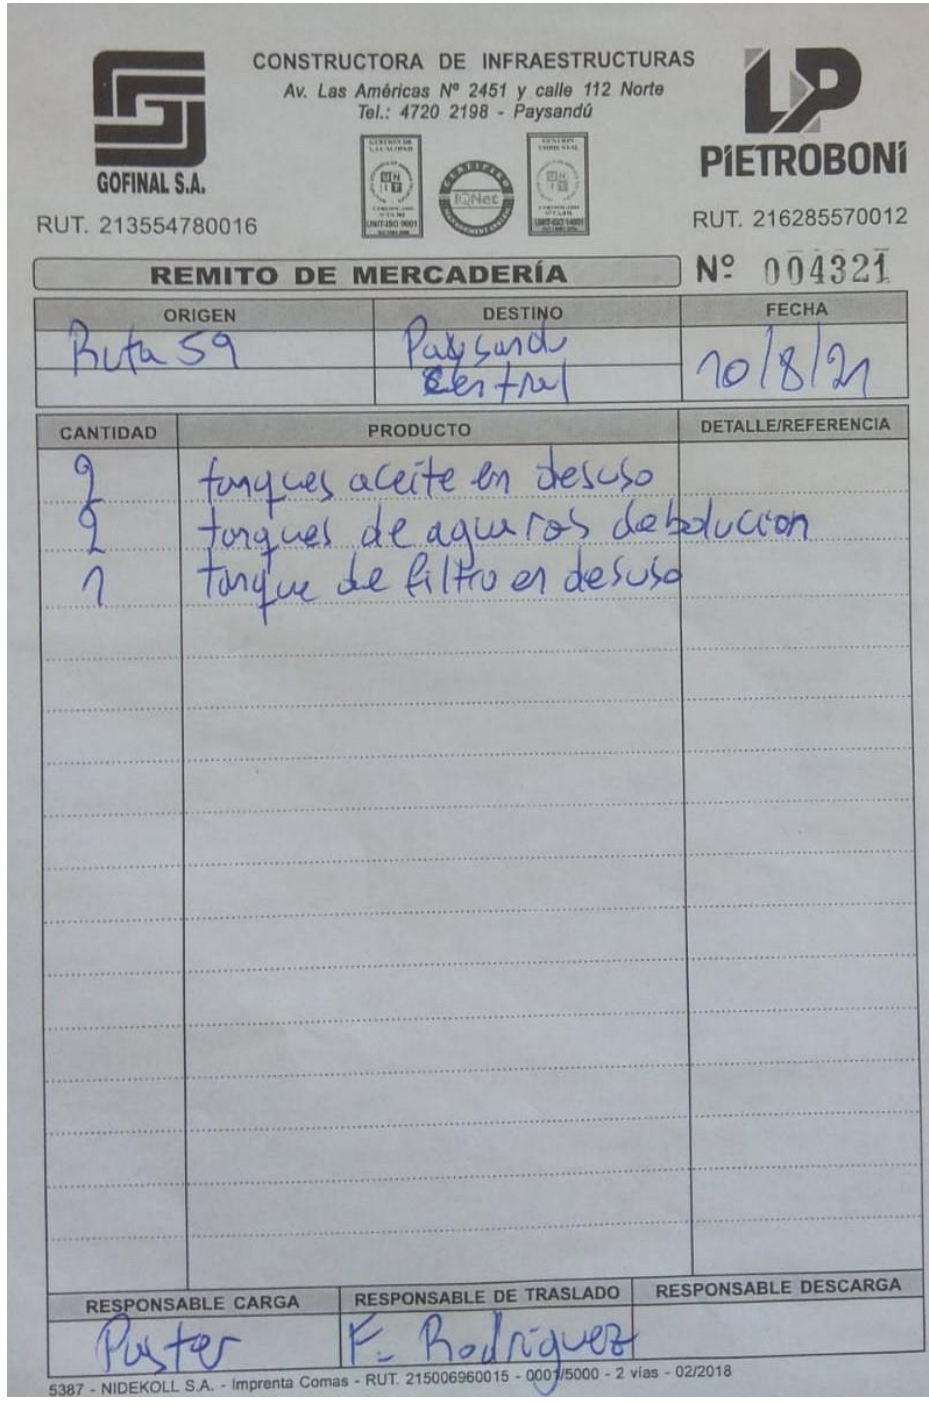 CONSTRUCTORA DE INFRAESTRUCTURAS
Av. Las Américas Nº 2451 y calle 112 Norte
Tel.: 4720 2198 - Paysandú
GOFINAL S.A.
PIETROBONI
UNIT-ISO 9001
IQNet
UNIT-ISO 14001
RUT. 213554780016
RUT. 216285570012
REMITO DE MERCADERÍA
Nº 004321
ORIGEN DESTINO FECHA
Ruta 59 Paysandu
Central 10/8/21
CANTIDAD PRODUCTO DETALLE/REFERENCIA
2 tanques aceite en desuso
2 tanques de agua ras debolucion
1 tanque de filtro en desuso
RESPONSABLE CARGA RESPONSABLE DE TRASLADO RESPONSABLE DESCARGA
Puster F. Rodriguez
5387 - NIDEKOLL S.A. - Imprenta Comas - RUT. 215006960015 - 0001/5000 - 2 vías - 02/2018